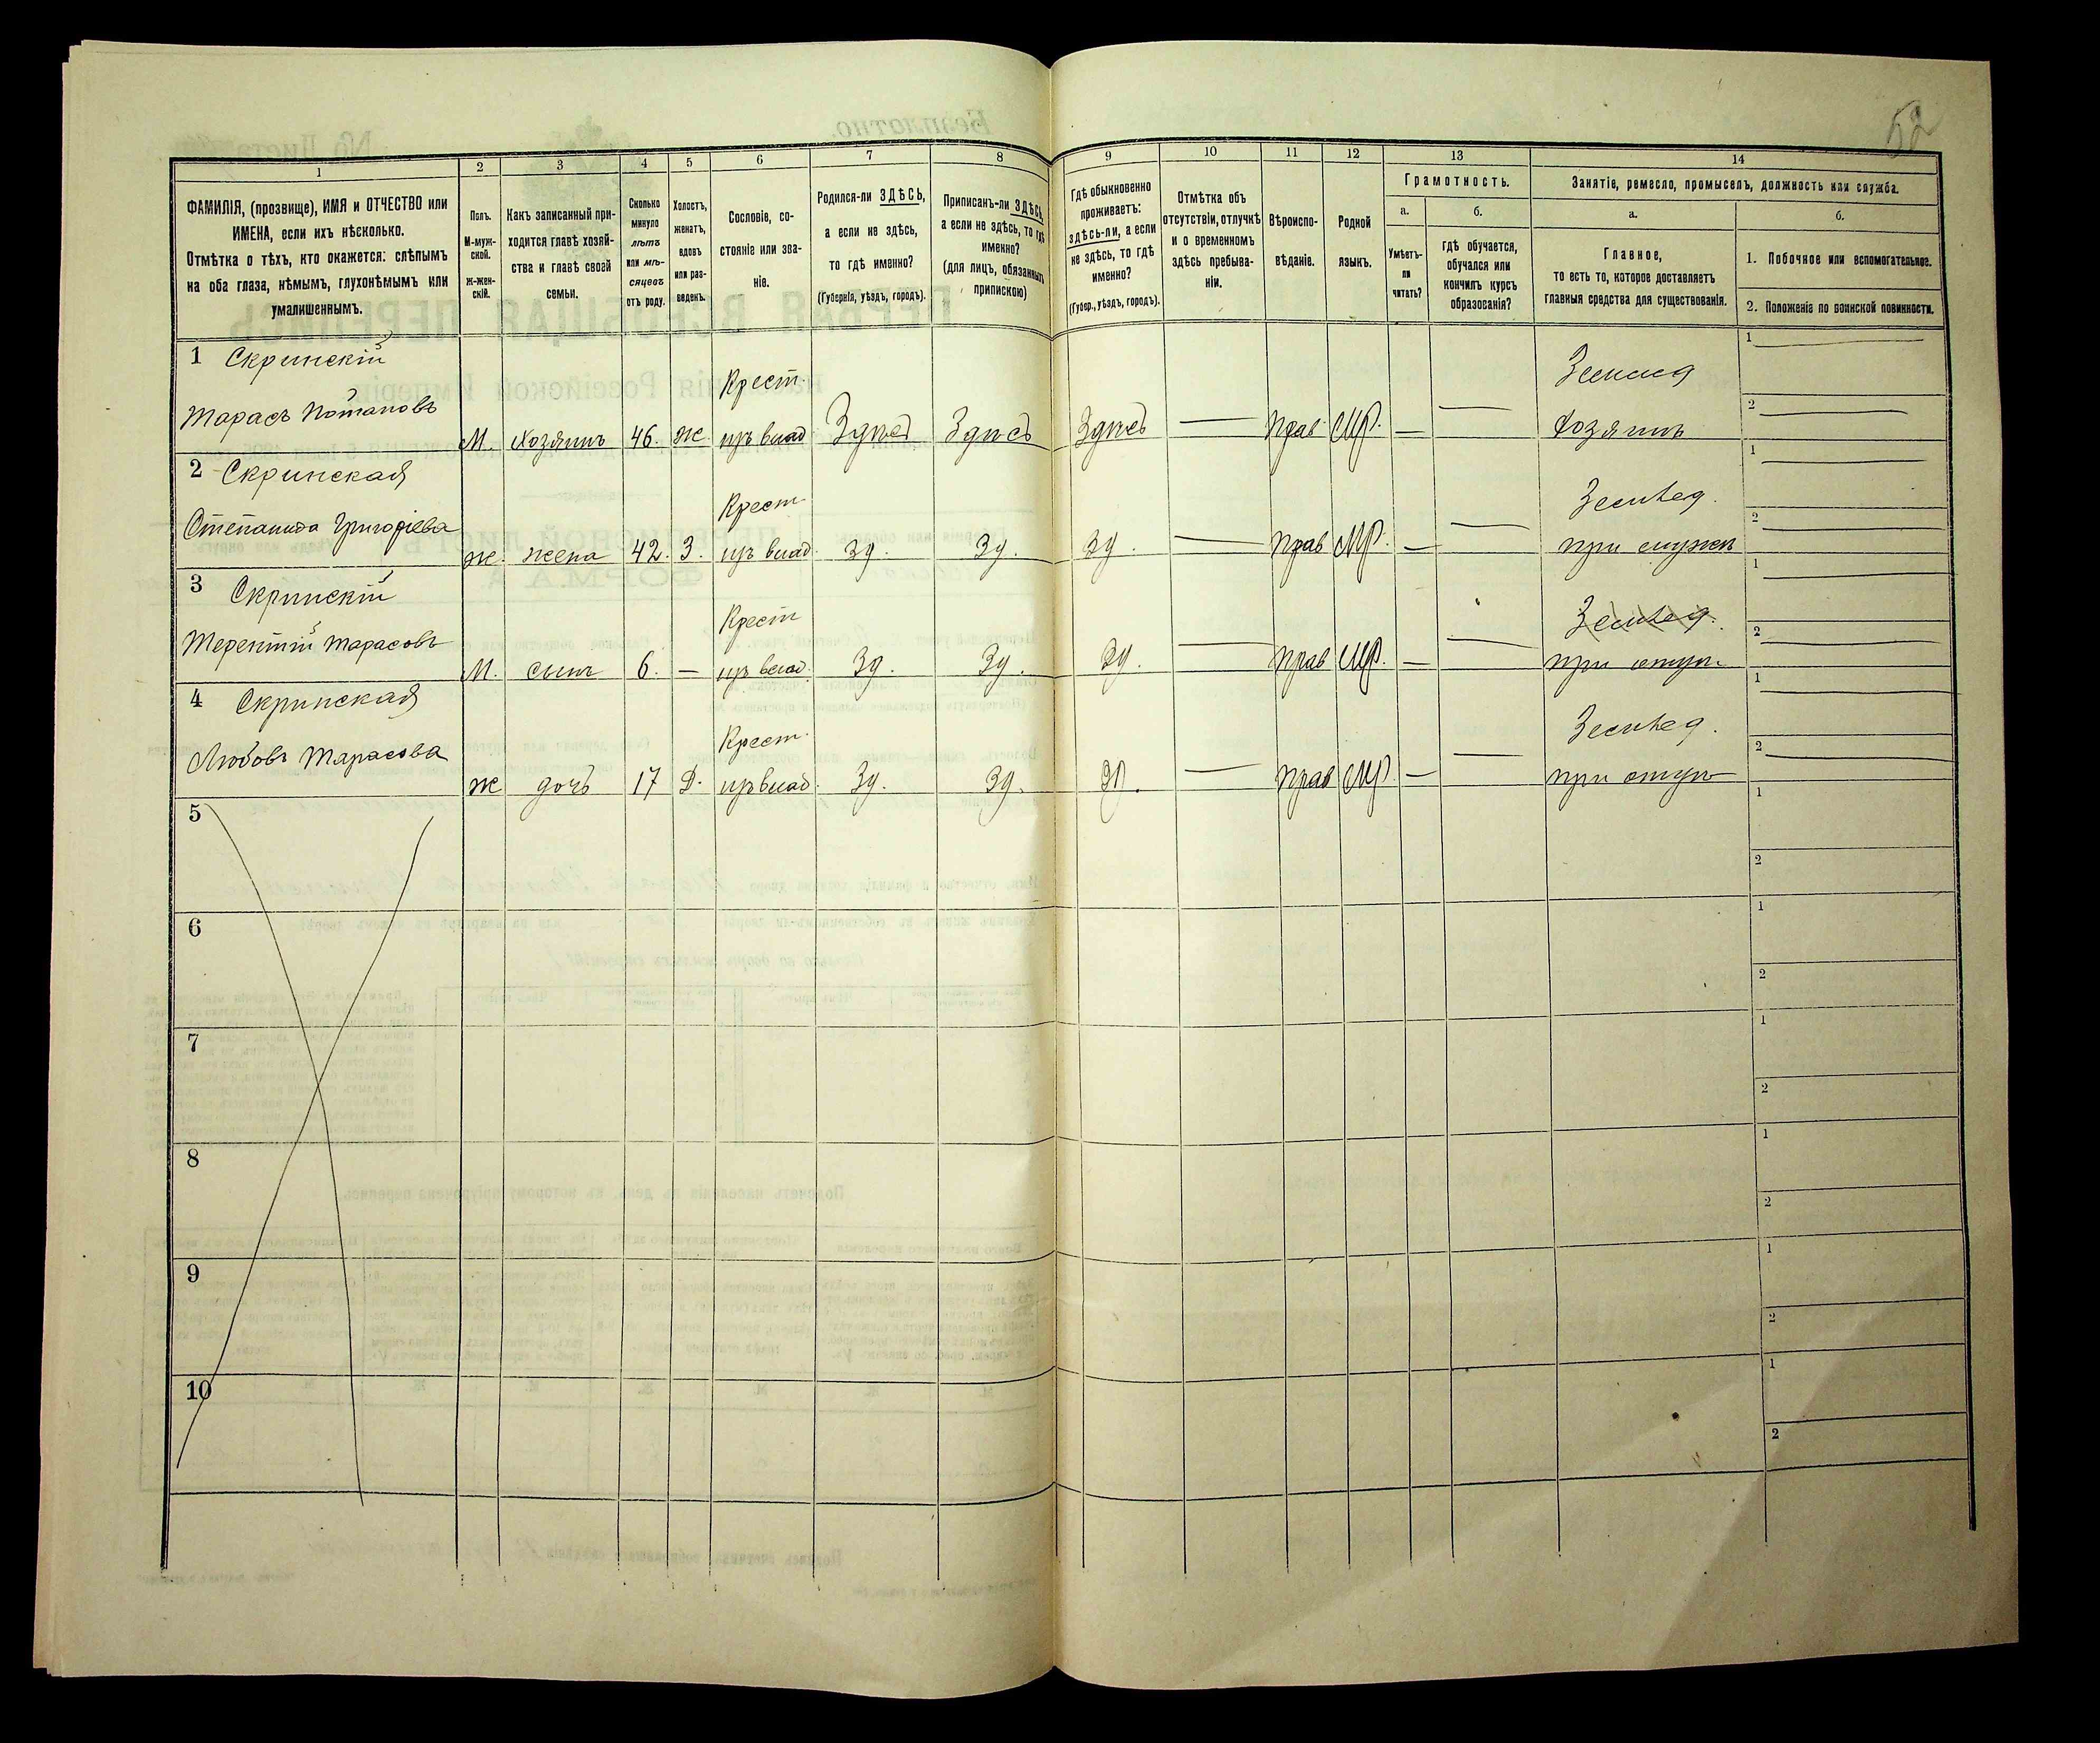 52
1
2
3
4
5
6
7
8
9
10
11
12
13
14
ФАМИЛІЯ, (прозвище), ИМЯ и ОТЧЕСТВО или
ИМЕНА, если ихъ нѣсколько.
Отмѣтка о тѣхъ, кто окажется: слѣпымъ
на оба глаза, нѣмымъ, глухонѣмымъ или
умалишеннымъ.
Полъ.
М-муж-
ской.
Ж-жен-
скій.
Какъ записанный при-
ходится главѣ хозяй-
ства и главѣ своей
семьи.
Сколько
минуло
лѣтъ
или мѣ-
сяцевъ
отъ роду.
Холостъ,
женатъ,
вдовъ
или раз-
веденъ.
Сословіе, со-
стояніе или зва-
ніе.
Родился-ли ЗДѢСЬ,
а если не здѣсь,
то гдѣ именно?
(Губернія, уѣздъ, городъ).
Приписанъ-ли ЗДѢСЬ,
а если не здѣсь, то гдѣ
именно?
(для лицъ, обязанныхъ
припискою)
Гдѣ обыкновенно
проживаетъ:
здѣсь-ли, а если
не здѣсь, то гдѣ
именно?
(Губер., уѣздъ, городъ).
Отмѣтка объ
отсутствіи, отлучкѣ
и о временномъ
здѣсь пребыва-
ніи.
Вѣроиспо-
вѣданіе.
Родной
языкъ.
Грамотность.
а.
Умѣетъ-
ли
читать?
б.
гдѣ обучается,
обучался или
кончилъ курсъ
образованія?
Занятіе, ремесло, промыселъ, должность или служба.
а.
Главное,
то есть то, которое доставляетъ
главныя средства для существованія.
б.
1. Побочное или вспомогательное.
2. Положеніе по воинской повинности.
1 Скринскій
Тарасъ Потаповъ
М. Хозяинъ 46. ж. Крест. изъ влад Здѣсь Здѣсь Здѣсь — прав. Мр. — — Землед Хозяинъ
1
2
2 Скринская
Степанида Григоріева
ж. жена 42. З. Крест. изъ влад. Зд. Зд. Зд. — прав Мр. — — Землед. при мужѣ
1
2
3 Скринскій
Терентій Тарасовъ
М. сынъ 6. — Крест изъ влад. Зд. Зд. Зд. — прав Мр. — — Землед. при отцѣ
1
2
4 Скринская
Любовь Тарасова
ж дочь 17 Д. Крест. изъ влад. Зд. Зд. Зд. — прав Мр. — — Землед. при отцѣ
1
2
5
1
2
6
1
2
7
1
2
8
1
2
9
1
2
10
1
2